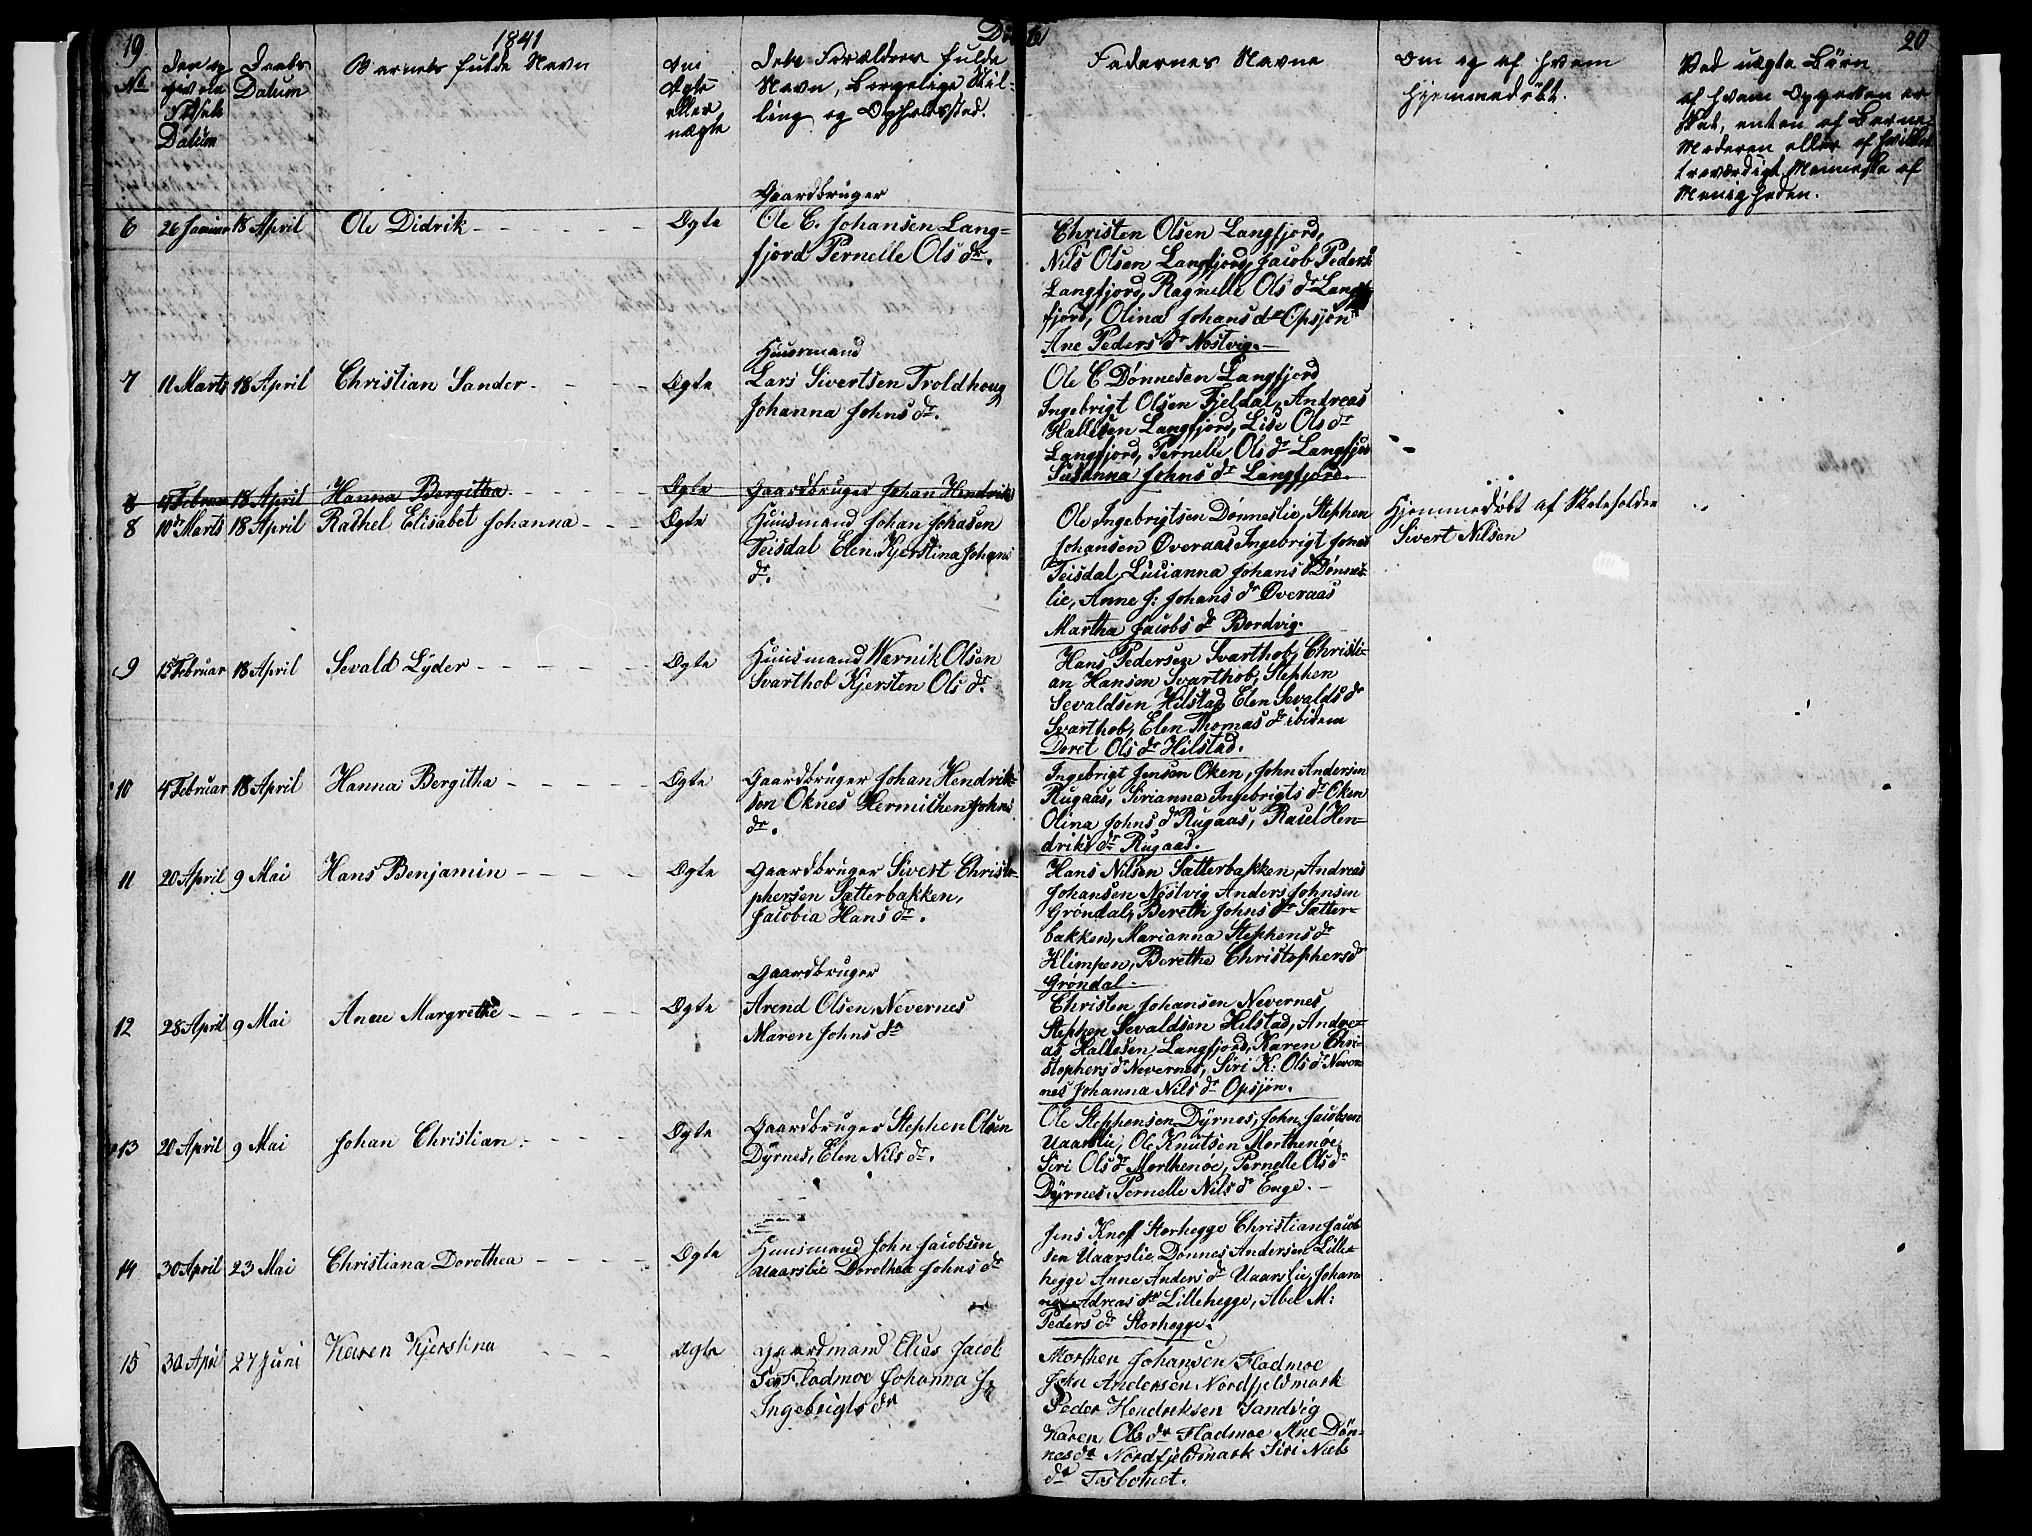 19
1841
20
No
Den og
givne
Føsels
Datum
Daabs
Datum
Barnets fulde Navn
Om
Ægte
eller
uægte
Dets Forældres fulde
Navn, borgelige Stil-
ling og Opholdssted.
Fadernes Navne
Om og af hvem
hjemmedøbt.
Ved uægte Børn
af hvem Opgaven er
skeet, enten af Barne-
Moderen eller af hvilket
troværdigt Menneske af
Menigheden.
6 26 Januar 18 April Ole Didrik Ægte
Gaardbruger
Ole C. Johansen Lang=
fjord Pernelle Ols dr.
Christen Olsen Langfjord,
Nils Olsen Langfjord, Jacob Peders
Langfjord, Ragnelle Ols dr Lang
fjord, Olina Johans dr Opsjøn
Ane Peders dr Nostvig.
7 11 Marts 18 April Christian Sander Ægte
Huusmand
Lars Sivertsen Troldhoug
Johanna Johns dr.
Ole C Dønnesen Langfjord
Ingebrigt Olsen Fjeldal, Andreas
Hallesen Langfjord, Lise Ols dr
Langfjord, Pernelle Ols dr Langfjor
Susanna Johns dr Langfjord.
8 4 Februar 18 April Hanna Bergitha Ægte Gaardbruger Johan Hendrik
8 10 Marts 18 April Rachel Elisabet Johanna Ægte
Huusmand Johan Johasen
Teisdal Elen Kjerstina Johans
dr.
Ole Ingebrigtsen Dønneslie, Stephen
Johansen Øveraas Ingebrigt Jones
Teisdal, Lusianna Johans dr Dønnes-
lie, Anne J: Johans dr Øveraas
Martha Jacobs dr Bordvig.
Hjemmedøbt af Skoleholder
Sivert Nilsen
9 15 Februar 18 April Sevald Lyder Ægte
Huusmand Wernik Olsen
Svarthob Kjersten Ols dr.
Hans Pedersen Svarthob, Christi-
an Hansen Svarthob, Stephen
Sevaldsen Hilstad, Elen Sevalds dr
Svarthob, Elen Thomas dr ibidem
Doret Ols dr Hilstad.
10 4 Februar 18 April Hanna Bergitha Ægte
Gaardbruger Johan Hendrik-
sen Oknes Hermithen Johns
dr.
Ingebrigt Jensen Oken, John Andersen
Rugaas, Sirianna Ingebrigts dr Oken
Olina Johns dr Rugaas, Rasel Hen-
driks dr Rugaas.
11 20 April 9 Mai Hans Benjamin Ægte
Gaardbruger Sivert Christo-
phersen Satterbakken,
Jacobia Hans dr.
Hans Nilsen Satterbakken, Andreas
Johansen Nostvig Anders Johnsen
Grøndal, Bereth Johns dr Satter-
bakken, Marianna Stephens dr
Klimpen, Berethe Christophers dr
Grøndal
12 28 April 9 Mai Anne Margrethe Ægte
Gaardbruger
Arend Olsen, Nevernes
Maren Johns dr
Christen Johansen Nevernes
Stephen Sevaldsen Hilstad, Andre-
as Hallesen Langfjord, Karen Chri-
stophers dr Nevernes, Siri K: Ols dr Never
nes Johanna Nils dr Opsjøn.
13 20 April 9 Mai Johan Christian Ægte
Gaardbruger Stephen Olsen
Dyrnes, Elen Nils dr.
Ole Stephensen Dyrnes, John Jacobsen
Uaarslie, Ole Knutsen Morthenøe
Siri Ols dr Morthenøe, Pernelle Ols dr
Dyrnes, Pernelle Nils dr Enge.
14 30 April 23 Mai Christiana Dorothea Ægte
Huusmand John Jacobsen
Uaarslie Dorothea Johns dr
Jens Knoff Storhegge Christian Jacob
sen Uaarslie, Dønnes Andersen Lille-
hegge Anne Anders dr Uaarslie, Johan
na Adreas dr Lillehegge, Abel M:
Peders dr Storhegge.
15 30 April 27 Juni Karen Kjerstina Ægte
Gaardmand Elias Jacob
sen Fladmoe Johanna J:
Ingebrigts dr
Morthen Johansen Fladmoe
John Andersen Nordfjeldmark
Peder Hendriksen Sandvig
Karen Ols dr Fladmoe Ane Døn-
nes dr Nordfjeldmark Siri Niels
dr Tosbotnet.